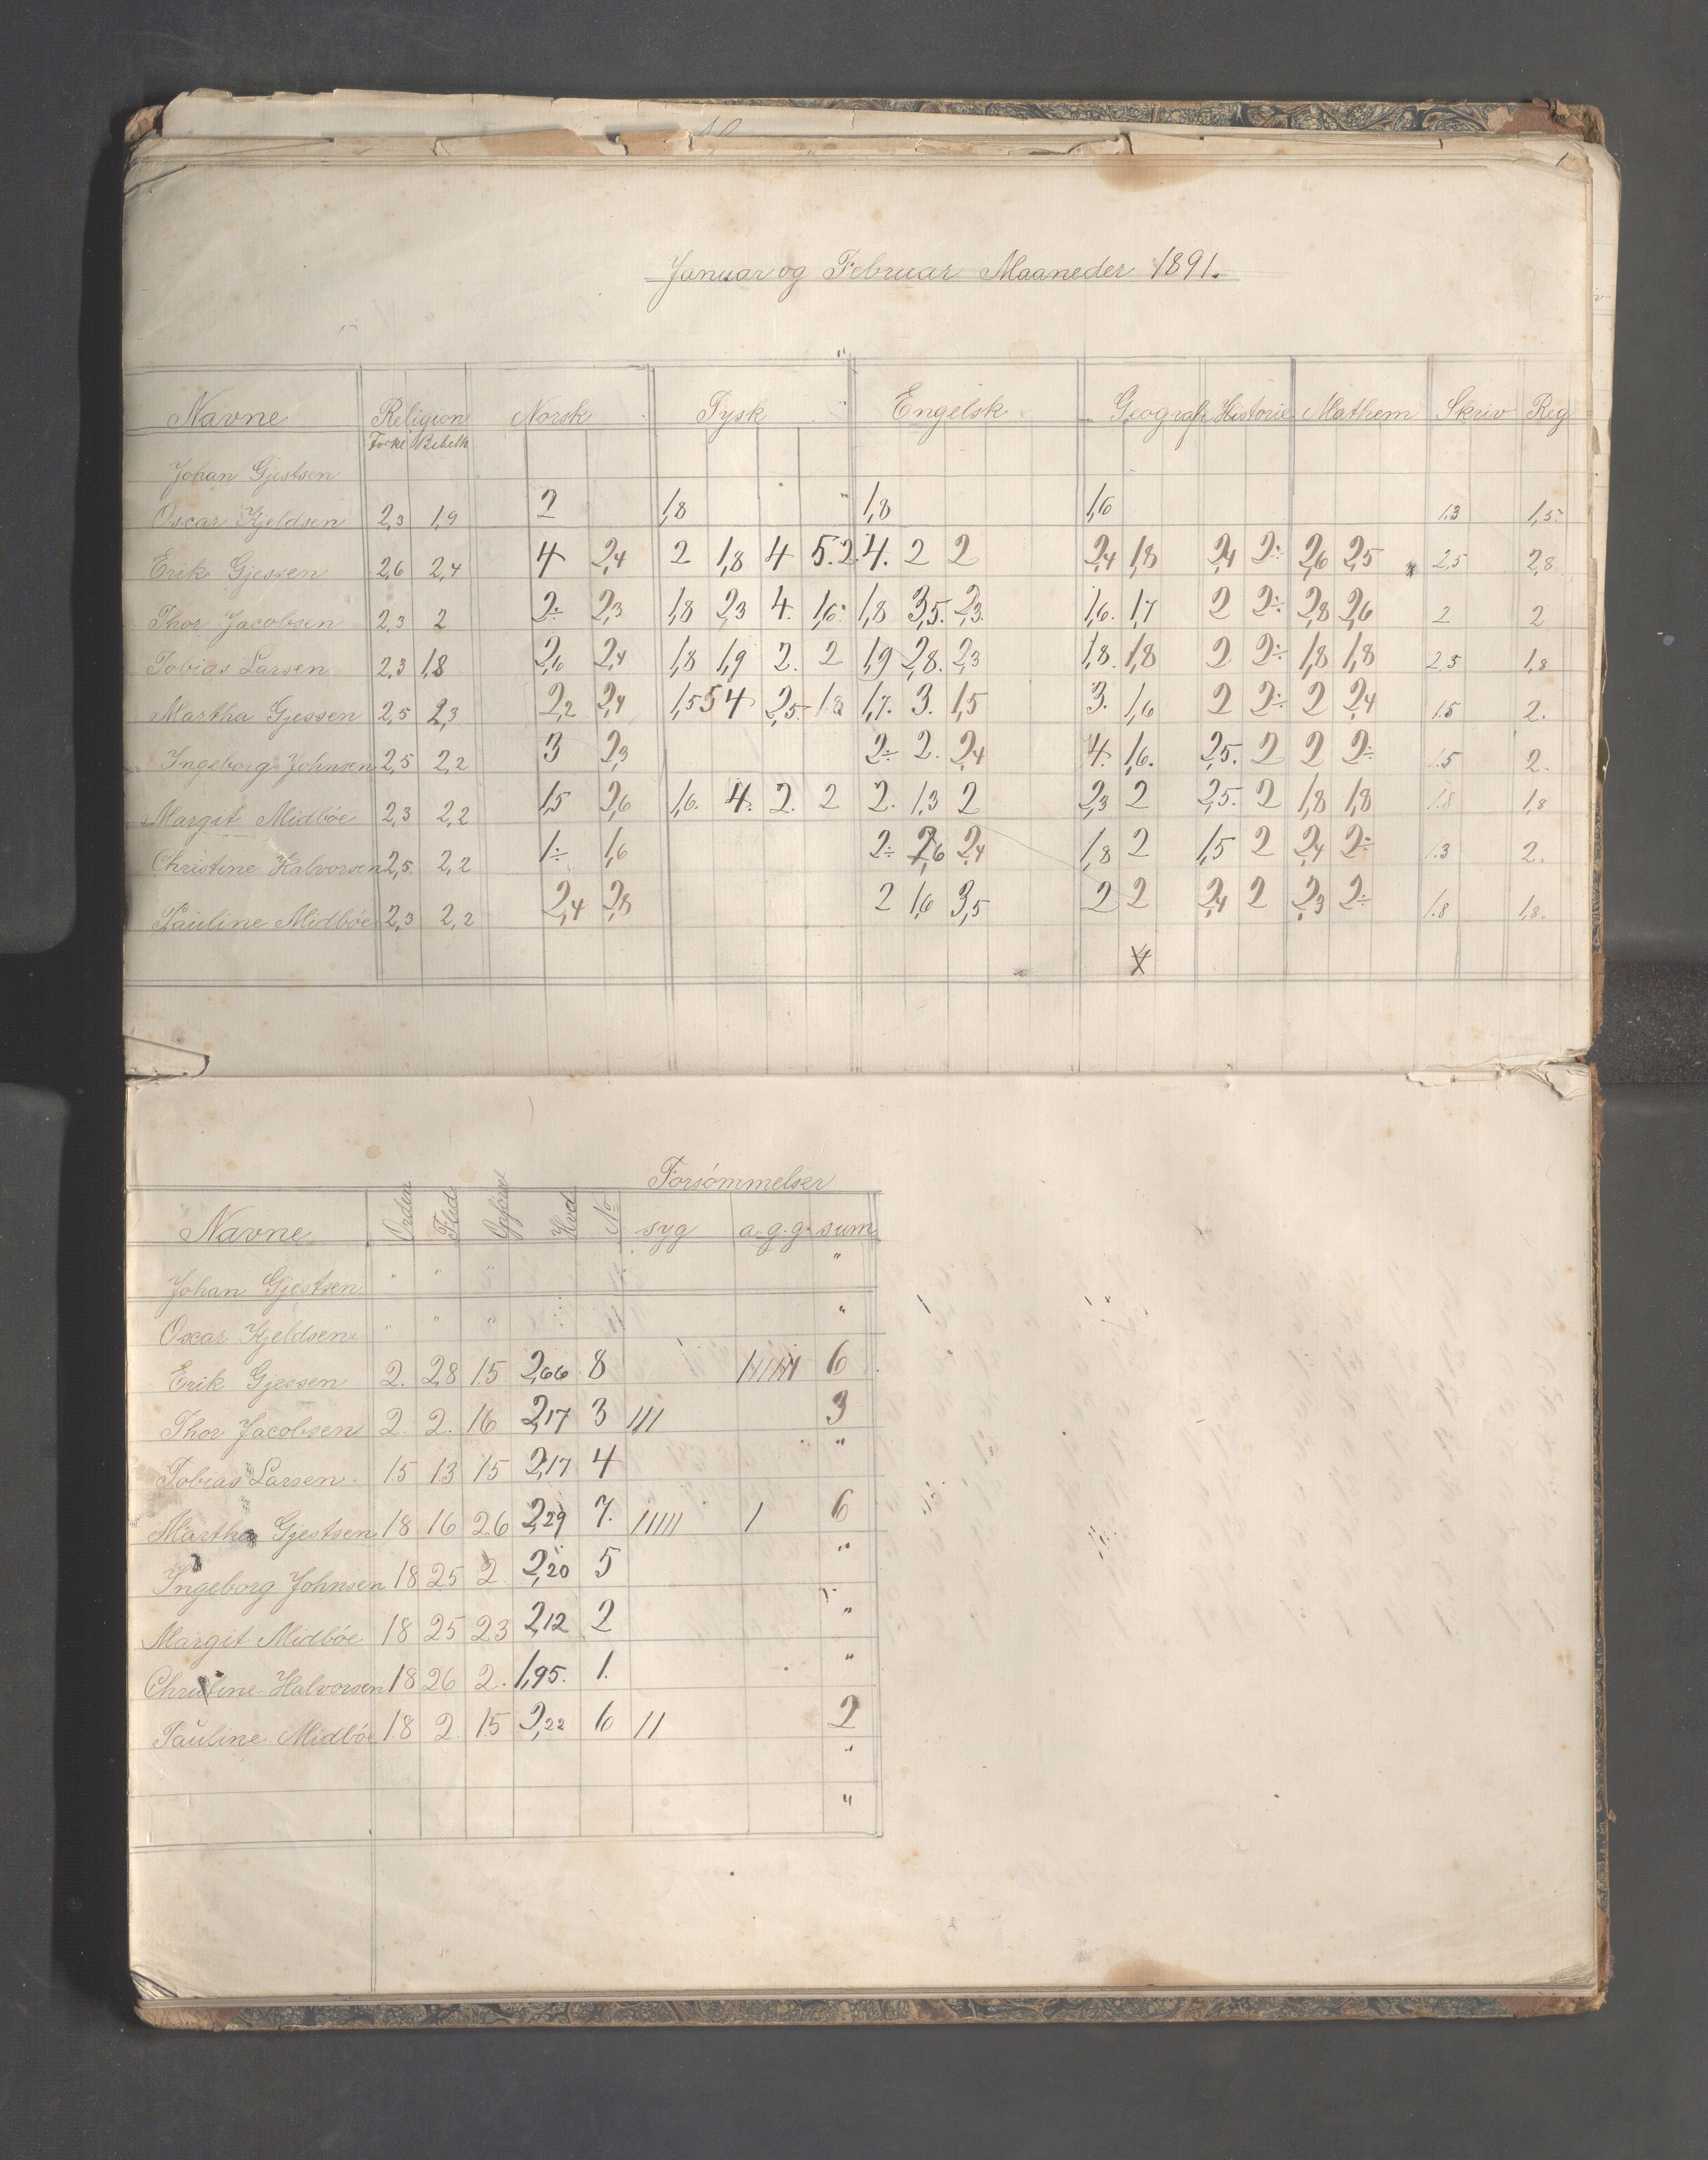 Januar og Februar Maaneder 1891.
Navne Religion Norsk Tysk Engelsk Geografi Historie Mathem Skriv Reg
Forkl Bibelh
Johan Gjestsen
Oscar Kjeldsen 2,3 1,9 2 1,8 1,8 1,6 1,3 1,5
Erik Gjessen 2,6 2,4 4 2,4 2 1,8 4 5.2 4. 2 2 2,4 1,8 2,4 2÷ 2,6 2,5 2,5 2,8
Thor Jacobsen 2,3 2 2÷ 2,3 1,8 2,3 4. 1,6. 1,8 3,5. 2,3. 1,6. 1,7 2 2÷ 2,8 2,6 2 2
Tobias Larsen 2,3 1,8 2,6 2,4 1,8 1,9 2. 2 1,9 2,8. 2,3 1,8. 1,8 2 2÷ 1,8 1,8 2,5 1,8
Martha Gjessen 2,5 2,3 2,2 2,4 1,5 5 4 2,5. 1,8 1,7. 3. 1,5 3. 1,6 2 2÷ 2 2,4 1.5 2.
Ingeborg Johnsen 2,5 2,2 3 2,3 2÷ 2. 2,4 4. 1,6. 2,5. 2 2 2÷ 1.5 2.
Margit Midbøe 2,3 2,2 1,5 2,6 1,6. 4. 2. 2 2. 1,3 2 2,3 2 2,5. 2 1,8 1,8 1.8 1,8
Christine Halvorsen 2,5. 2,2 1÷ 1,6 2÷ 2,6 2,4 1,8 2 1,5 2 2,4 2÷ 1.3 2.
Pauline Midbøe 2,3 2,2 2,4 2,8 2 1,6 3,5 2 2 2,4 2 2,3 2÷ 1.8 1,8.
Forsømmelser
Navne Orden Flid Opførsel Hvd No syg a.g.g. sum
Johan Gjestsen " " " "
Oscar Kjeldsen " " " "
Erik Gjessen 2. 2,8 1,5 2,66 8 6
Thor Jacobsen 2. 2. 16 2,17 3 III 3
Tobias Larsen 1.5 1.3 15 2,17 4 "
Martha Gjestsen 18 16 2.6 2,29 7. IIIII I 6
Ingeborg Johnsen 18 25 2 2,20 5 "
Margit Midbøe 18 25 23 2,12 2 "
Christine Halvorsen 18 26 2. 1,95. 1. "
Pauline Midbøe 1.8 2 1.5 2,22 6 II 2
"
"